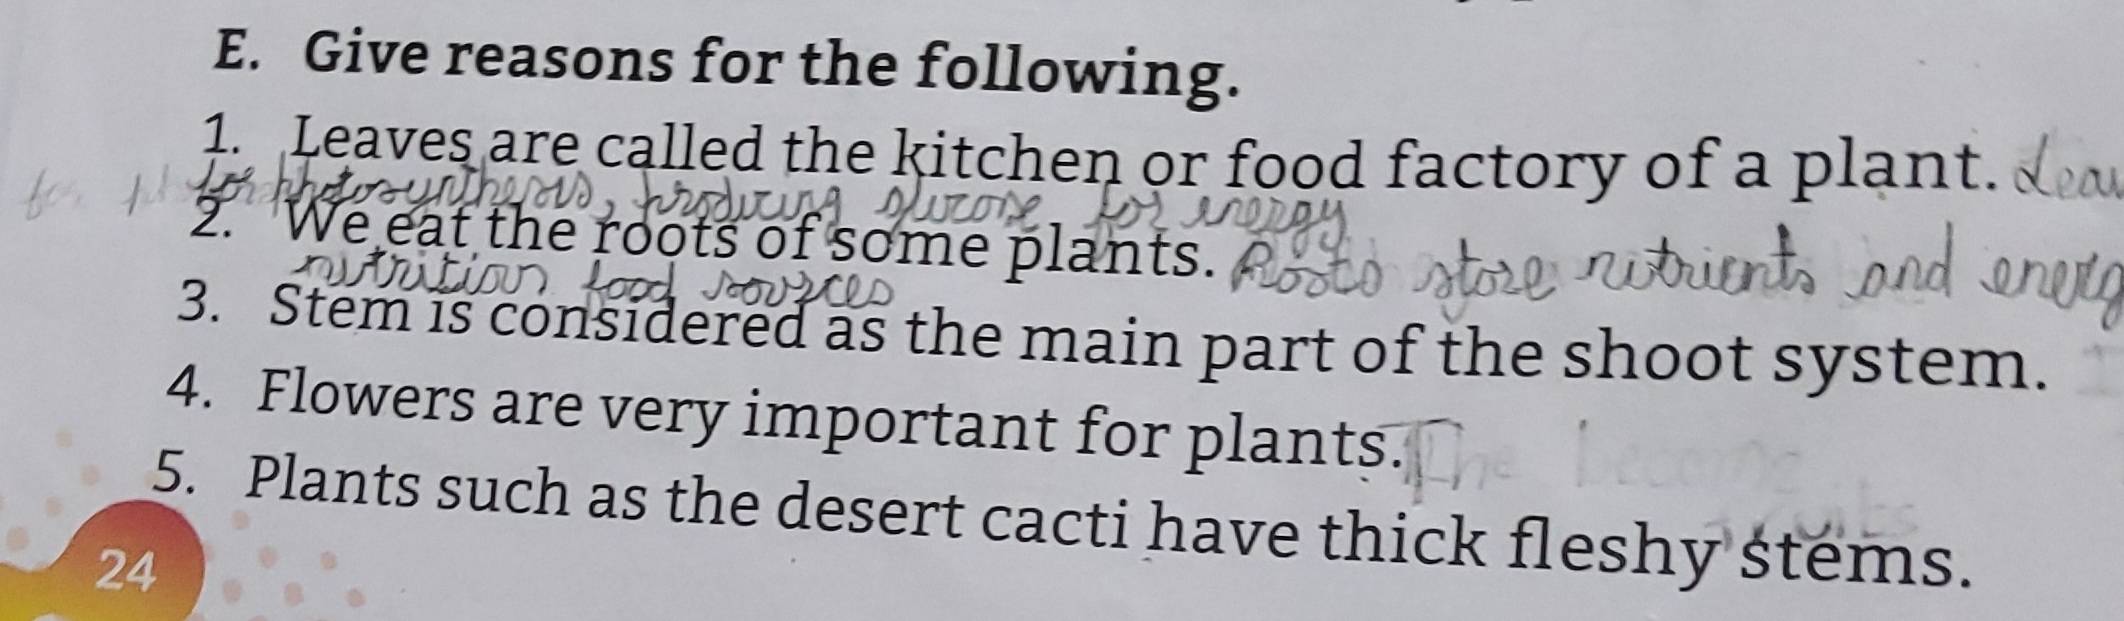 E. Give reasons for the following.
1. Leaves are called the kitchen or food factory of a plant.
for photosynthesis, producing glucose for energy
2. We eat the roots of some plants. Roots store nutrients and energ
nutrition food sources
3. Stem is considered as the main part of the shoot system.
4. Flowers are very important for plants. The become
5. Plants such as the desert cacti have thick fleshy stems.
24